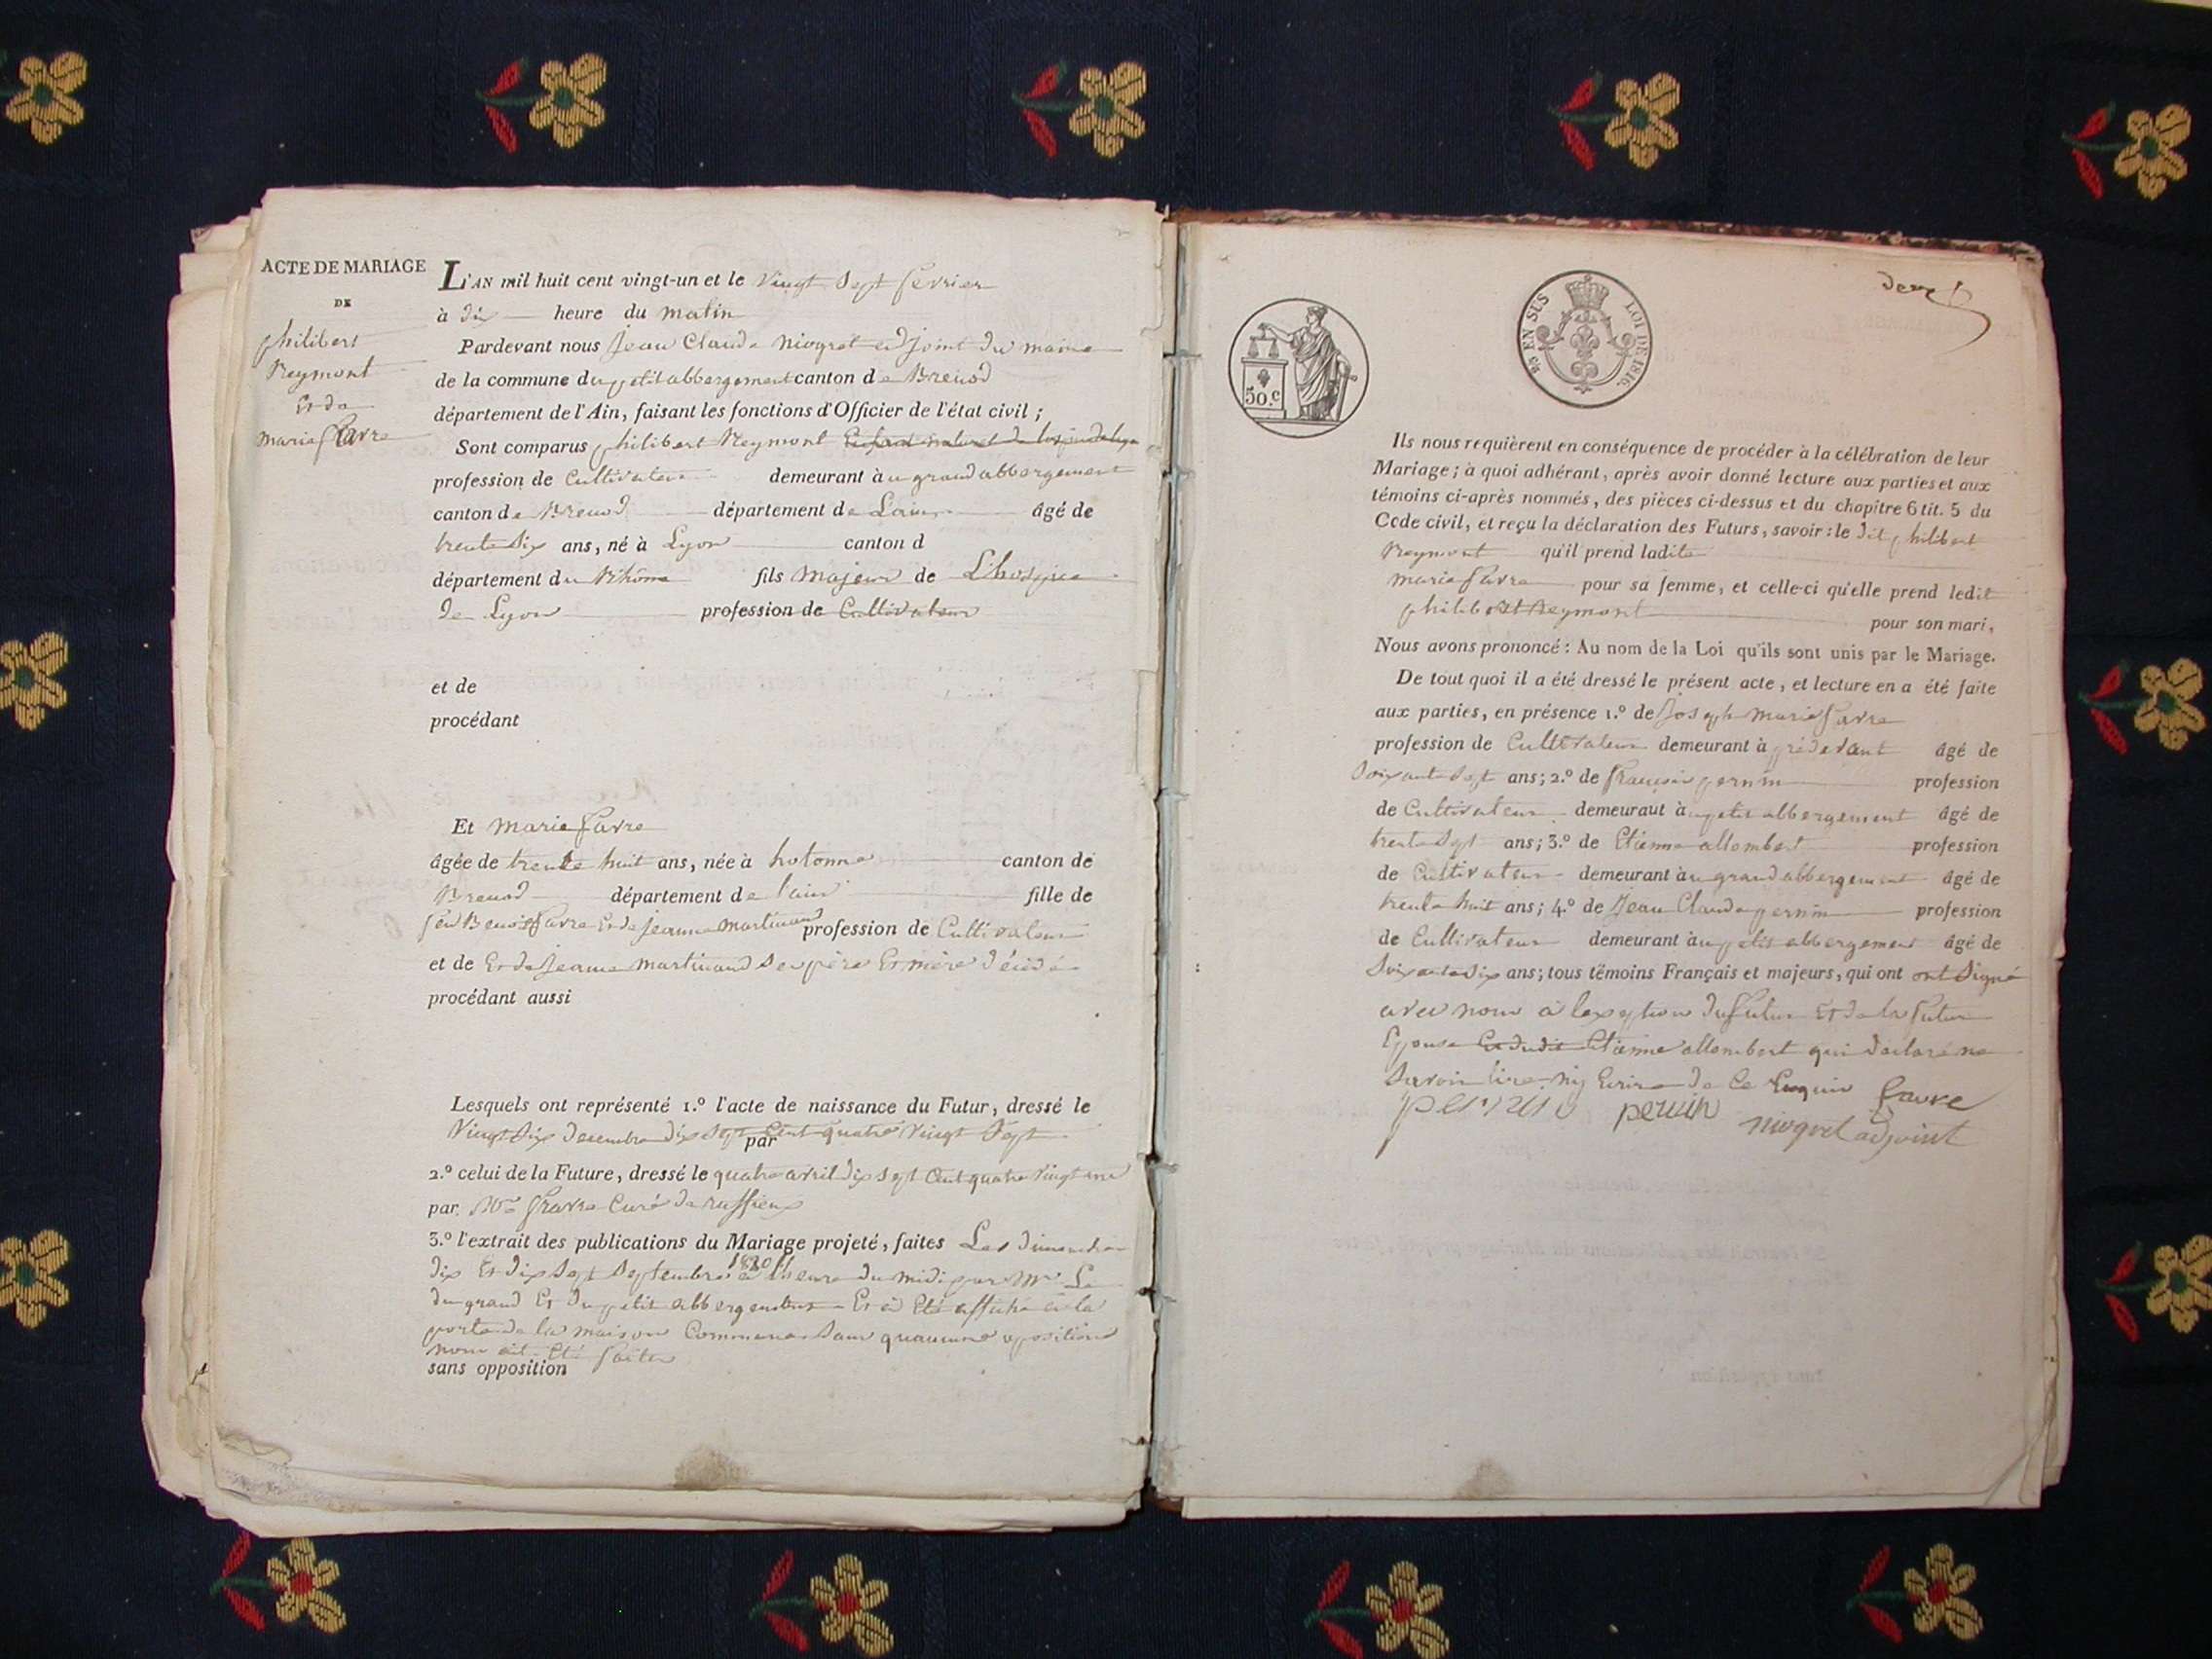 ACTE DE MARIAGE
DE
philibert
Reymont
Et de
marie favre
L'AN mil huit cent vingt-un et le vingt sept fevrier
à dix heure du matin
Pardevant nous Jean Claude niogret adjoint du maire
de la commune du petit abbergement canton de Brenod
département de l'Ain, faisant les fonctions d'Officier de l'état civil ;
Sont comparus philibert Reymont Enfant naturel de
profession de Cultivateur demeurant à au grand abbergement
canton de Brenod département de Lain âgé de
trente six ans, né à Lyon canton d
département du Rhône fils majeur de Lhospice
de Lyon profession de Cultivateur
et de
procédant
Et marie favre
âgée de trente huit ans, née à hotonne canton de
Brenod département de l'ain fille de
feu Benoit favre Et de jeanne martinand profession de Cultivateur
et de Et de jeanne martinand Ses père Et mère décédé
procédant aussi
Lesquels ont représenté 1.º l'acte de naissance du Futur, dressé le
Vingt Six decembre dix sept Cent quatre Vingt Sept
par
2.º celui de la Future, dressé le quatre avril dix sept Cent quatre Vingt
par. Mr favre Curé de ruffieux
3.º l'extrait des publications du Mariage projeté, faites Les dimanche
1820
dix Et dix Sept Septembre à heure du midi par Mr
du grand Et du petit abbergement Et a Eté affiché à la
porte de la maison Commune Sans quaucune oposition
nous ait Eté faite
sans opposition
deux
50.c
EN SUS LOI DE 1816.
Ils nous requièrent en conséquence de procéder à la célébration de leur
Mariage; à quoi adhérant, après avoir donné lecture aux parties et aux
témoins ci-après nommés, des pièces ci-dessus et du chapitre 6 tit. 5 du
Code civil, et reçu la déclaration des Futurs, savoir : le dit philibert
Reymont qu'il prend ladite
marie favre pour sa femme, et celle-ci qu'elle prend ledit
philibert Reymont
pour son mari,
Nous avons prononcé : Au nom de la Loi qu'ils sont unis par le Mariage.
De tout quoi il a été dressé le présent acte, et lecture en a été faite
aux parties, en présence 1.º de Joseph marie favre
profession de Cultivateur demeurant à âgé de
Soixante Sept ans; 2.º de françois pernin profession
de Cultivateur demeurant à au petit abbergement âgé de
trente Sept ans; 3.º de Etienne allombert profession
de Cultivateur demeurant à au grand abbergement âgé de
trente huit ans; 4.º de Jean Claude pernin profession
de Cultivateur demeurant à au petit abbergement âgé de
Soixante Six ans; tous témoins Français et majeurs, qui ont ont Signé
avec nous à lexseption du futur Et de la future
Epouse Et dudit Etienne allombert qui declare ne
Savoir lire ny Ecrire de Ce Enquis favre
pernin pernin niogret adjoint